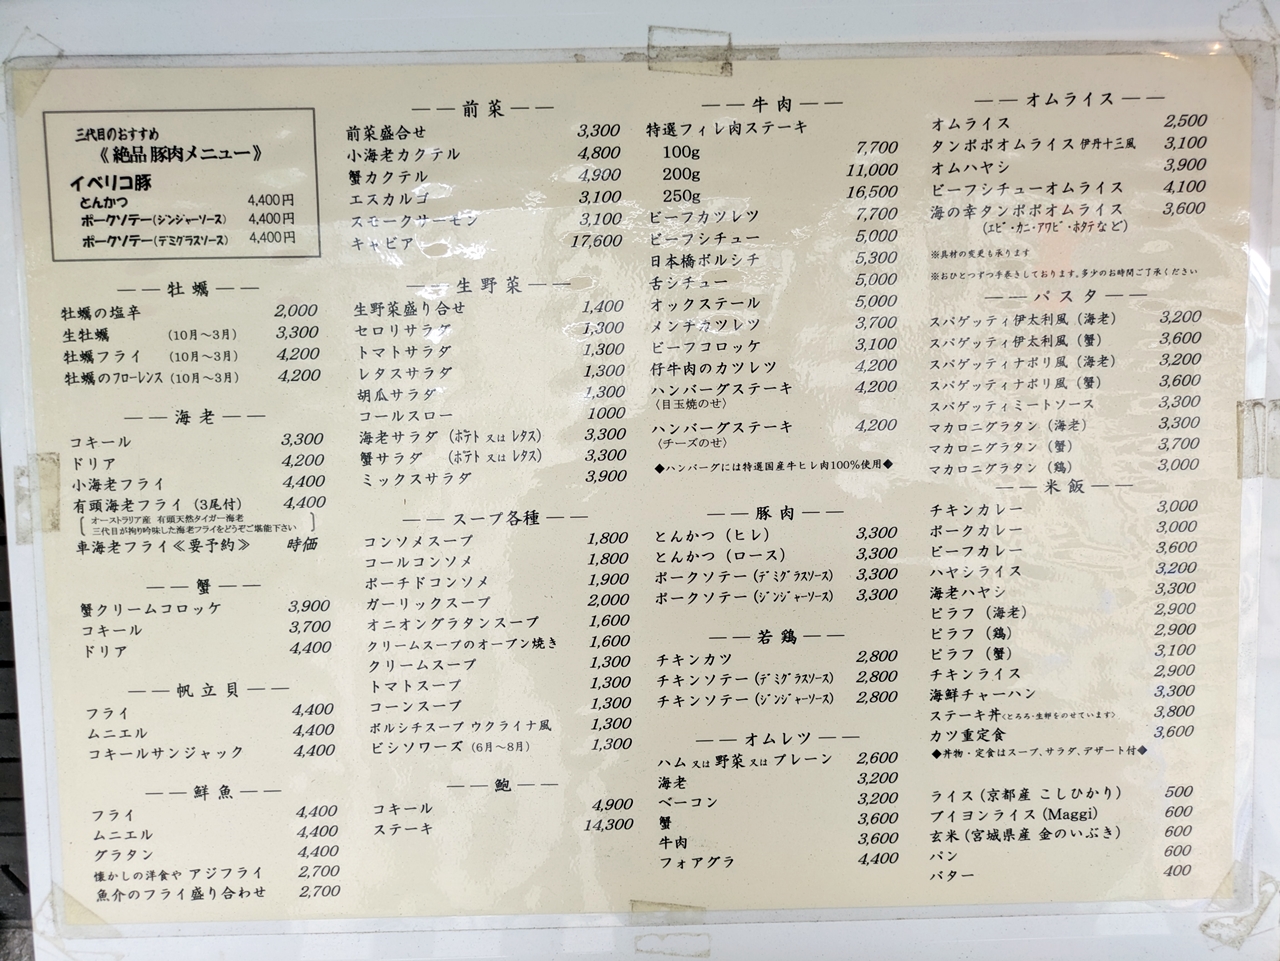 三代目のおすすめ
《絶品 豚肉メニュー》
イベリコ豚
とんかつ 4,400円
ポークソテー(ジンジャーソース) 4,400円
ポークソテー(デミグラスソース) 4,400円
――牡蠣――
牡蠣の塩辛 2,000
生牡蠣 (10月〜3月) 3,300
牡蠣フライ (10月〜3月) 4,200
牡蠣のフローレンス (10月〜3月) 4,200
――海老――
コキール 3,300
ドリア 4,200
小海老フライ 4,400
有頭海老フライ (3尾付) 4,400
オーストラリア産 有頭天然タイガー海老
三代目が拘り吟味した海老フライをどうぞご堪能下さい
車海老フライ≪要予約≫ 時価
――蟹――
蟹クリームコロッケ 3,900
コキール 3,700
ドリア 4,400
――帆立貝――
フライ 4,400
ムニエル 4,400
コキールサンジャック 4,400
――鮮魚――
フライ 4,400
ムニエル 4,400
グラタン 4,400
懐かしの洋食や アジフライ 2,700
魚介のフライ盛り合わせ 2,700
――前菜――
前菜盛合せ 3,300
小海老カクテル 4,800
蟹カクテル 4,900
エスカルゴ 3,100
スモークサーモン 3,100
キャビア 17,600
――生野菜――
生野菜盛り合せ 1,400
セロリサラダ 1,300
トマトサラダ 1,300
レタスサラダ 1,300
胡瓜サラダ 1,300
コールスロー 1000
海老サラダ (ポテト 又は レタス) 3,300
蟹サラダ (ポテト 又は レタス) 3,300
ミックスサラダ 3,900
――スープ各種――
コンソメスープ 1,800
コールコンソメ 1,800
ポーチドコンソメ 1,900
ガーリックスープ 2,000
オニオングラタンスープ 1,600
クリームスープのオーブン焼き 1,600
クリームスープ 1,300
トマトスープ 1,300
コーンスープ 1,300
ボルシチスープ ウクライナ風 1,300
ビシソワーズ (6月〜8月) 1,300
――鮑――
コキール 4,900
ステーキ 14,300
――牛肉――
特選フィレ肉ステーキ
100g 7,700
200g 11,000
250g 16,500
ビーフカツレツ 7,700
ビーフシチュー 5,000
日本橋ボルシチ 5,300
舌シチュー 5,000
オックステール 5,000
メンチカツレツ 3,700
ビーフコロッケ 3,100
仔牛肉のカツレツ 4,200
ハンバーグステーキ 4,200
〈目玉焼のせ〉
ハンバーグステーキ 4,200
〈チーズのせ〉
◆ハンバーグには特選国産牛ヒレ肉100%使用◆
――豚肉――
とんかつ (ヒレ) 3,300
とんかつ (ロース) 3,300
ポークソテー (デミグラスソース) 3,300
ポークソテー (ジンジャーソース) 3,300
――若鶏――
チキンカツ 2,800
チキンソテー (デミグラスソース) 2,800
チキンソテー (ジンジャーソース) 2,800
――オムレツ――
ハム 又は 野菜 又は プレーン 2,600
海老 3,200
ベーコン 3,200
蟹 3,600
牛肉 3,600
フォアグラ 4,400
――オムライス――
オムライス 2,500
タンポポオムライス 伊丹十三風 3,100
オムハヤシ 3,900
ビーフシチューオムライス 4,100
海の幸タンポポオムライス 3,600
(エビ・カニ・アワビ・ホタテなど)
※具材の変更も承ります
※おひとつずつ手巻きしております。多少のお時間ご了承ください
――パスタ――
スパゲッティ伊太利風 (海老) 3,200
スパゲッティ伊太利風 (蟹) 3,600
スパゲッティナポリ風 (海老) 3,200
スパゲッティナポリ風 (蟹) 3,600
スパゲッティミートソース 3,300
マカロニグラタン (海老) 3,300
マカロニグラタン (蟹) 3,700
マカロニグラタン (鶏) 3,000
――米飯――
チキンカレー 3,000
ポークカレー 3,000
ビーフカレー 3,600
ハヤシライス 3,200
海老ハヤシ 3,300
ピラフ (海老) 2,900
ピラフ (鶏) 2,900
ピラフ (蟹) 3,100
チキンライス 2,900
海鮮チャーハン 3,300
ステーキ丼〈とろろ・生卵をのせています〉 3,800
カツ重定食 3,600
◆丼物・定食はスープ、サラダ、デザート付◆
ライス (京都産 こしひかり) 500
ブイヨンライス (Maggi) 600
玄米 (宮城県産 金のいぶき) 600
パン 600
バター 400